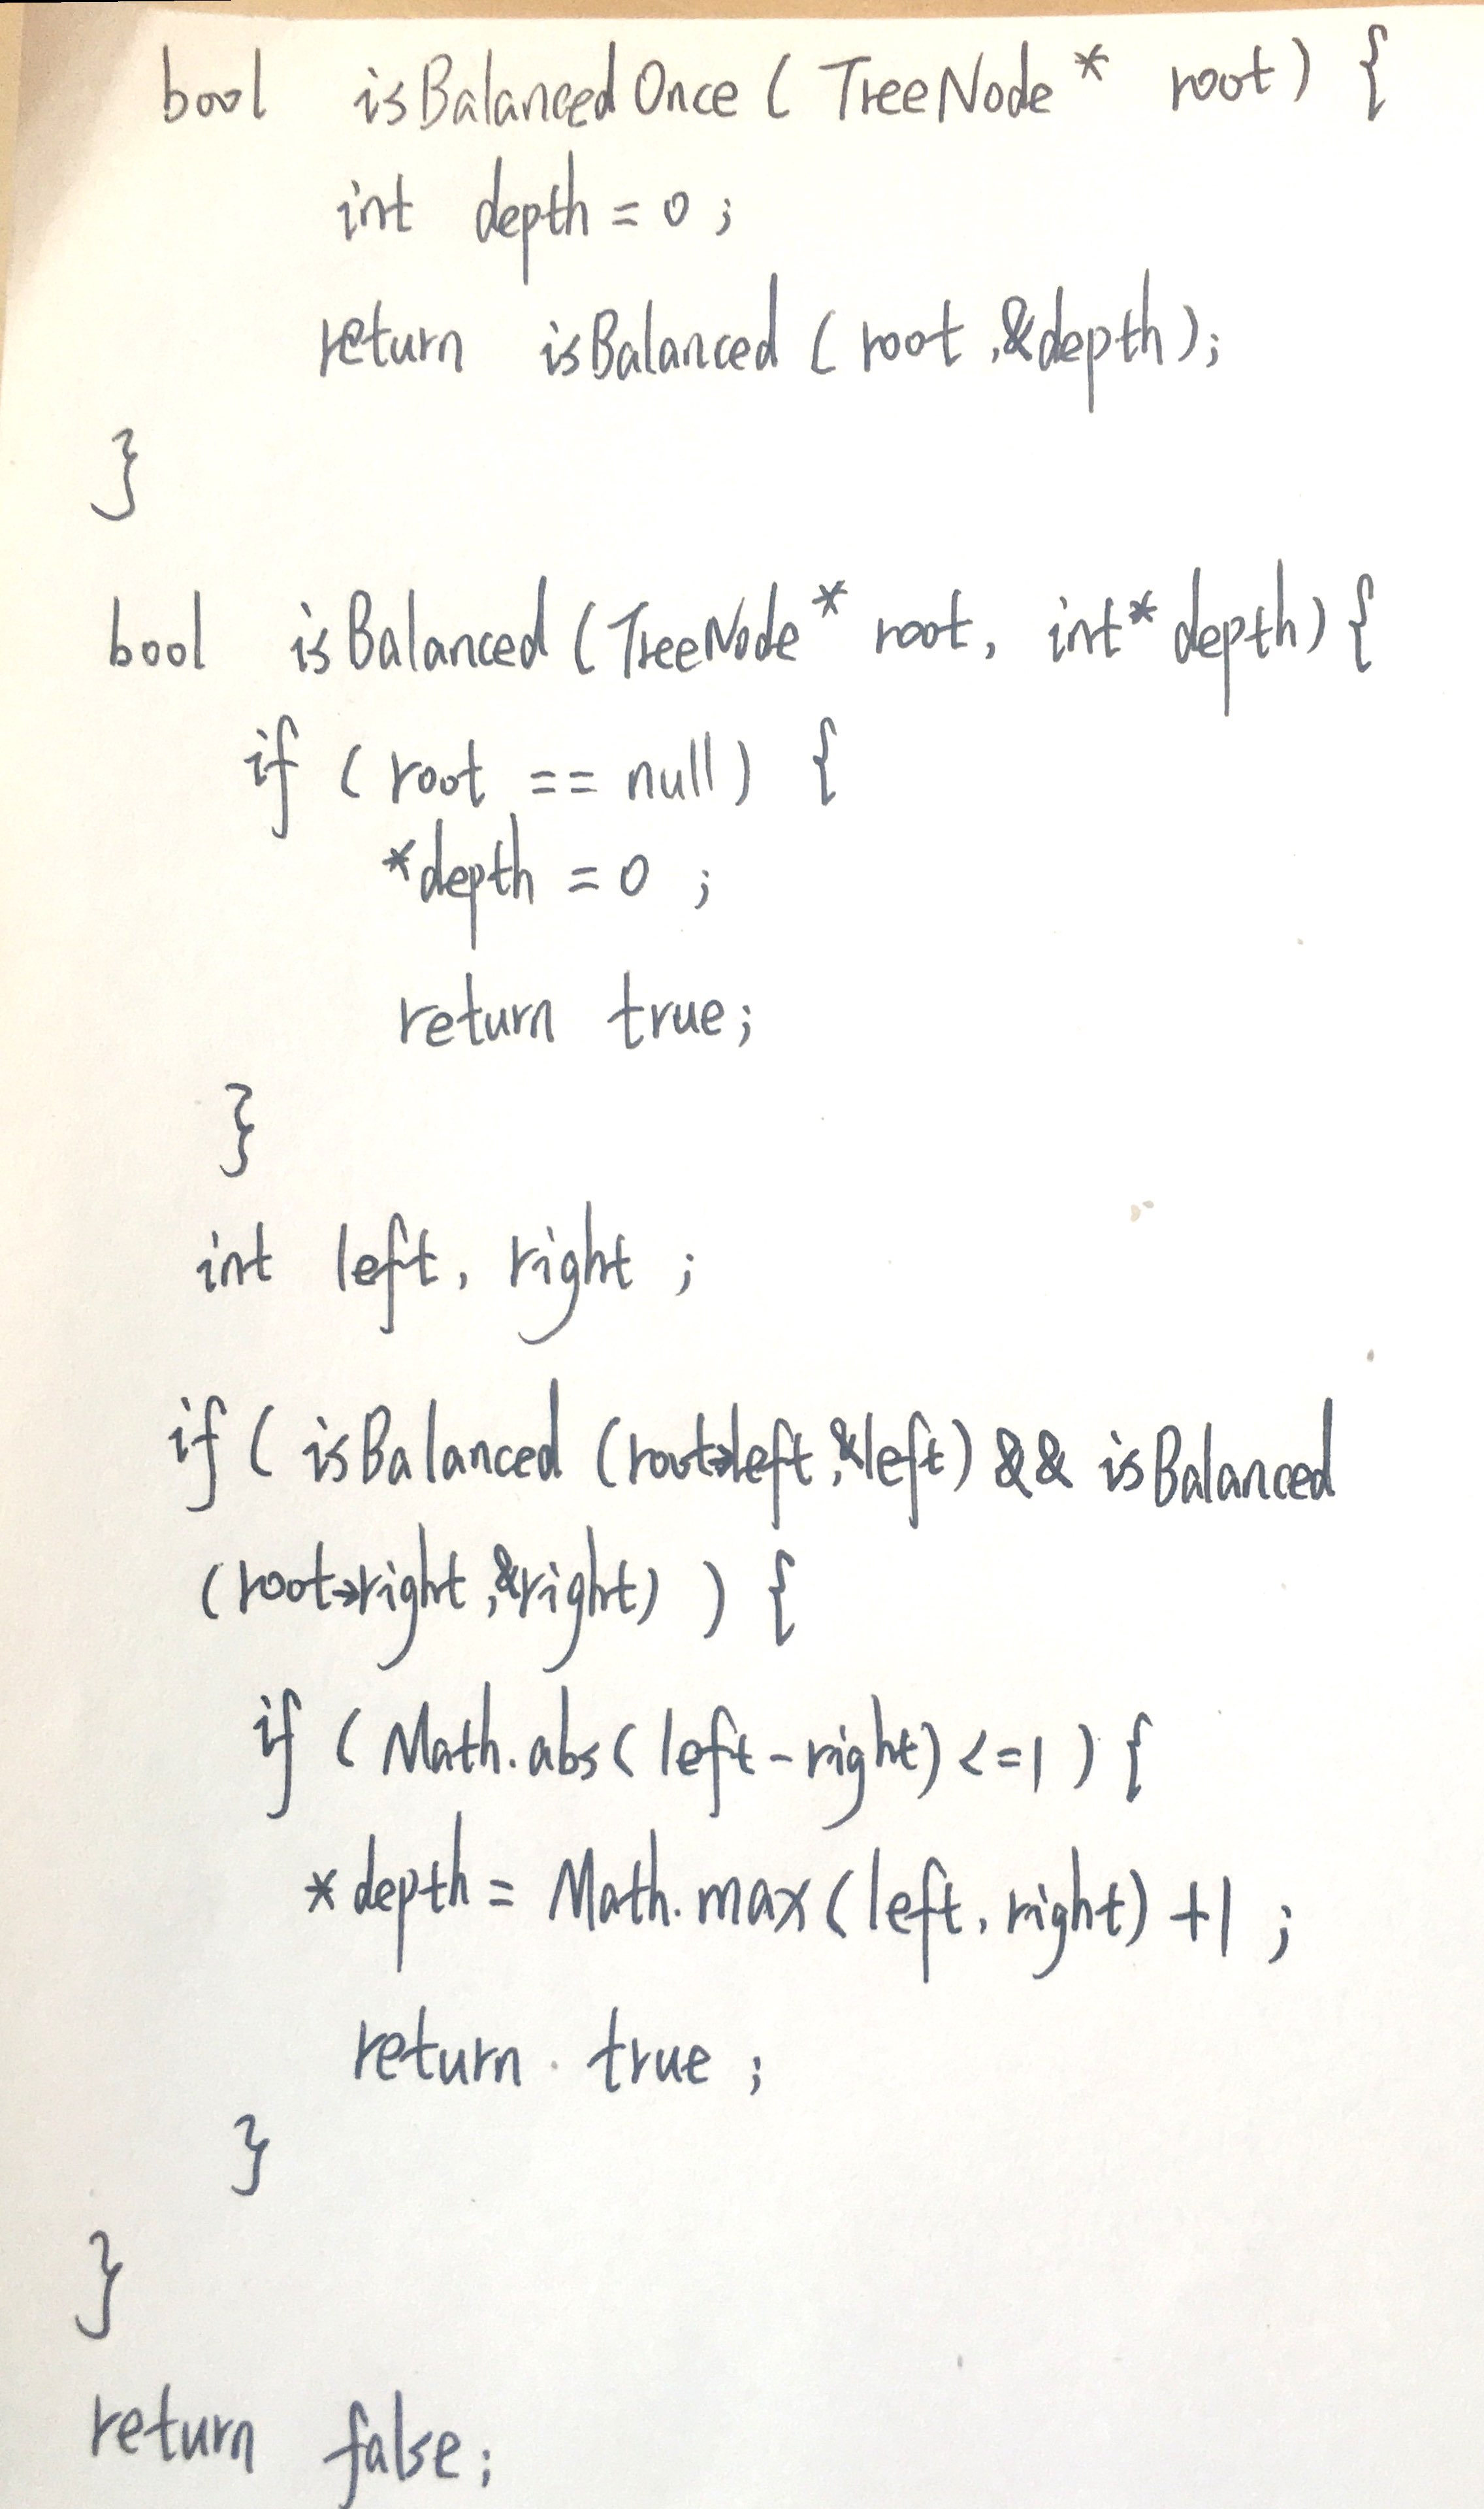 bool isBalancedOnce ( TreeNode * root) {
int depth = 0 ;
return isBalanced ( root ,&depth);
}
bool isBalanced (TreeNode * root, int* depth) {
if ( root == null) {
*depth = 0 ;
return true;
}
int left, right ;
if ( isBalanced (root→left ,&left) && isBalanced
(root→right ,&right) ) {
if ( Math.abs( left - right) <=1 ) {
* depth = Math.max( left, right) +1 ;
return true ;
}
}
return false;